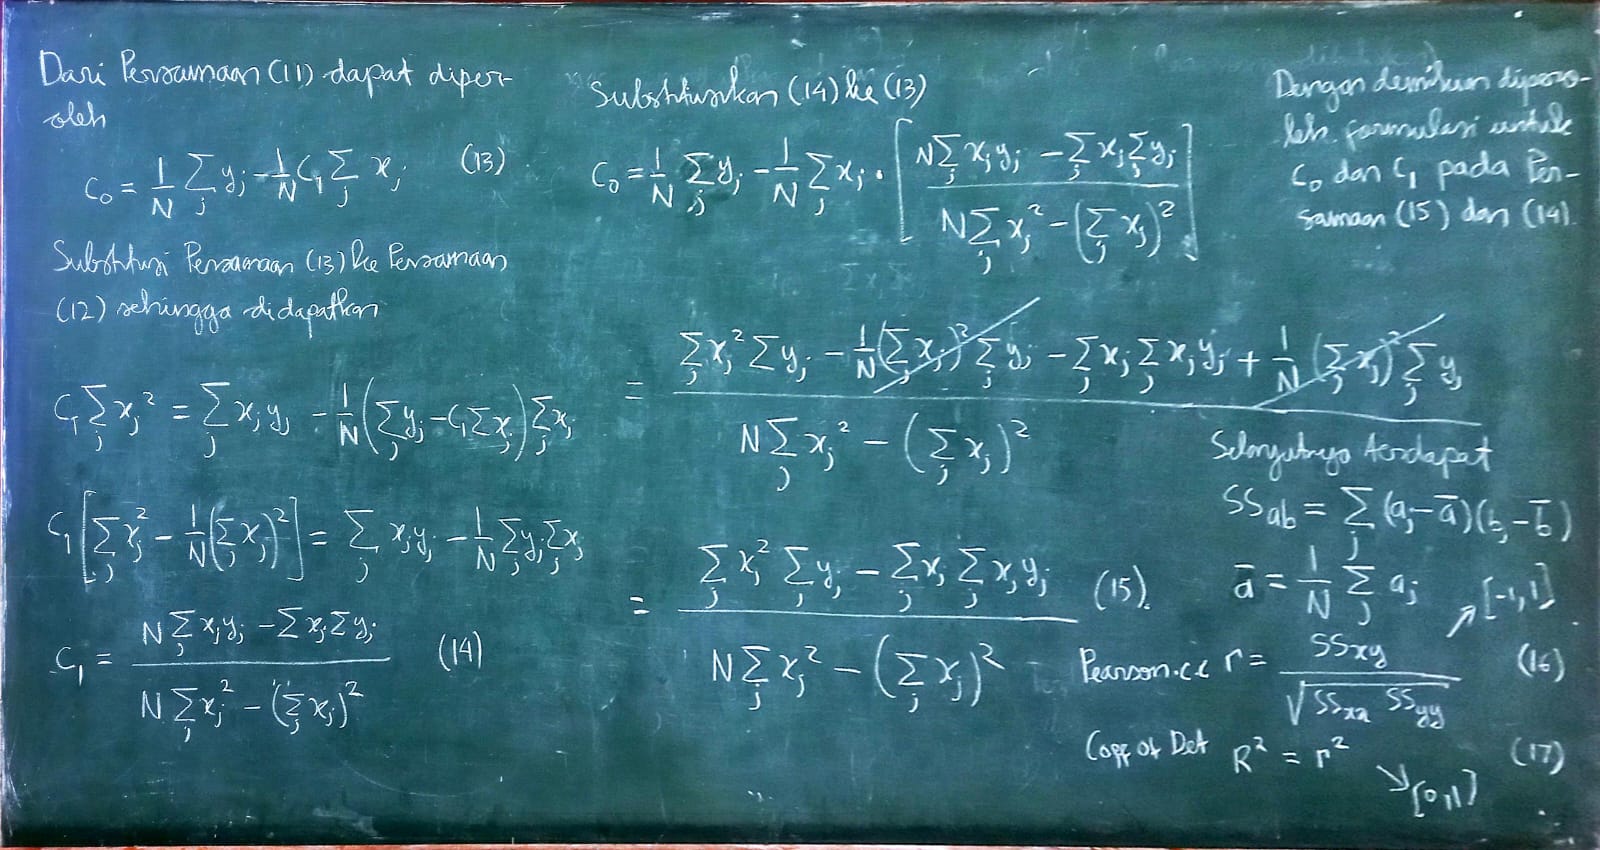 Dari Persamaan (11) dapat diper-
oleh
C₀ = 1/N Σ_j y_j - 1/N C₁ Σ_j x_j (13)
Substitusi Persamaan (13) ke Persamaan
(12) sehingga didapatkan
C₁ Σ_j x_j² = Σ_j x_j y_j - 1/N (Σ_j y_j - C₁ Σ_j x_j) Σ_j x_j
C₁ [Σ_j x_j² - 1/N (Σ_j x_j)²] = Σ_j x_j y_j - 1/N Σ_j y_j Σ_j x_j
C₁ = (N Σ_j x_j y_j - Σ x_j Σ y_j) / (N Σ_j x_j² - (Σ_j x_j)²) (14)
Substitusikan (14) ke (13)
C₀ = 1/N Σ_j y_j - 1/N Σ_j x_j · [(N Σ_j x_j y_j - Σ_j x_j Σ_j y_j) / (N Σ_j x_j² - (Σ_j x_j)²)]
= (Σ_j x_j² Σ y_j - 1/N (Σ_j x_j)² Σ_j y_j - Σ_j x_j Σ_j x_j y_j + 1/N (Σ_j x_j)² Σ_j y_j) / (N Σ_j x_j² - (Σ_j x_j)²)
= (Σ_j x_j² Σ_j y_j - Σ_j x_j Σ_j x_j y_j) / (N Σ_j x_j² - (Σ_j x_j)²) (15).
Dengan demikian dipero-
leh formulasi untuk
C₀ dan C₁ pada Per-
samaan (15) dan (14).
Selanjutnya terdapat
SS_ab = Σ_j (a_j - a̅)(b_j - b̅)
a̅ = 1/N Σ_j a_j
↗ [-1,1]
Pearson.c.c r = SS_xy / √(SS_xx SS_yy) (16)
Coff of Det R² = r² (17)
↘ [0,1]